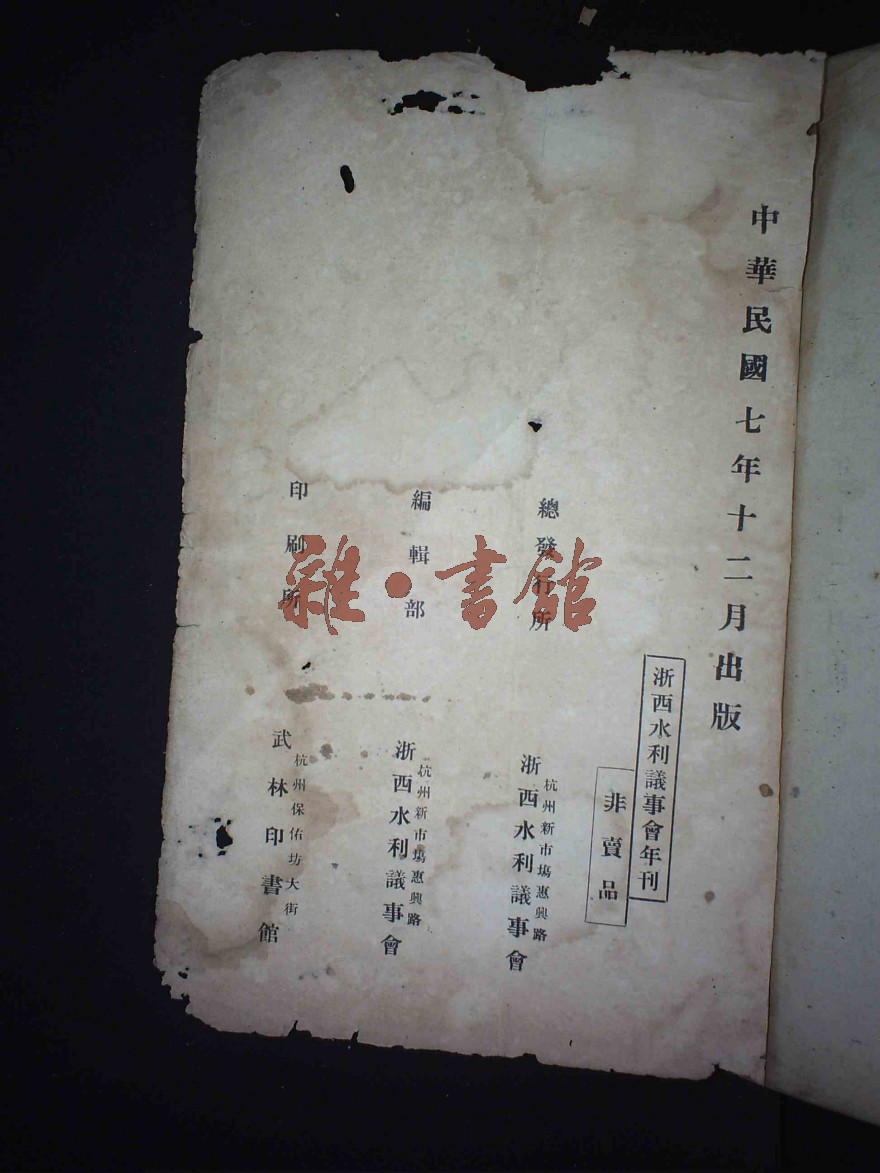 中華民國七年十二月出版
浙西水利議事會年刊
非賣品
總發行所
杭州新市塲惠興路
浙西水利議事會
編輯部
杭州新市塲惠興路
浙西水利議事會
印刷所
杭州保佑坊大街
武林印書館
雜·書館